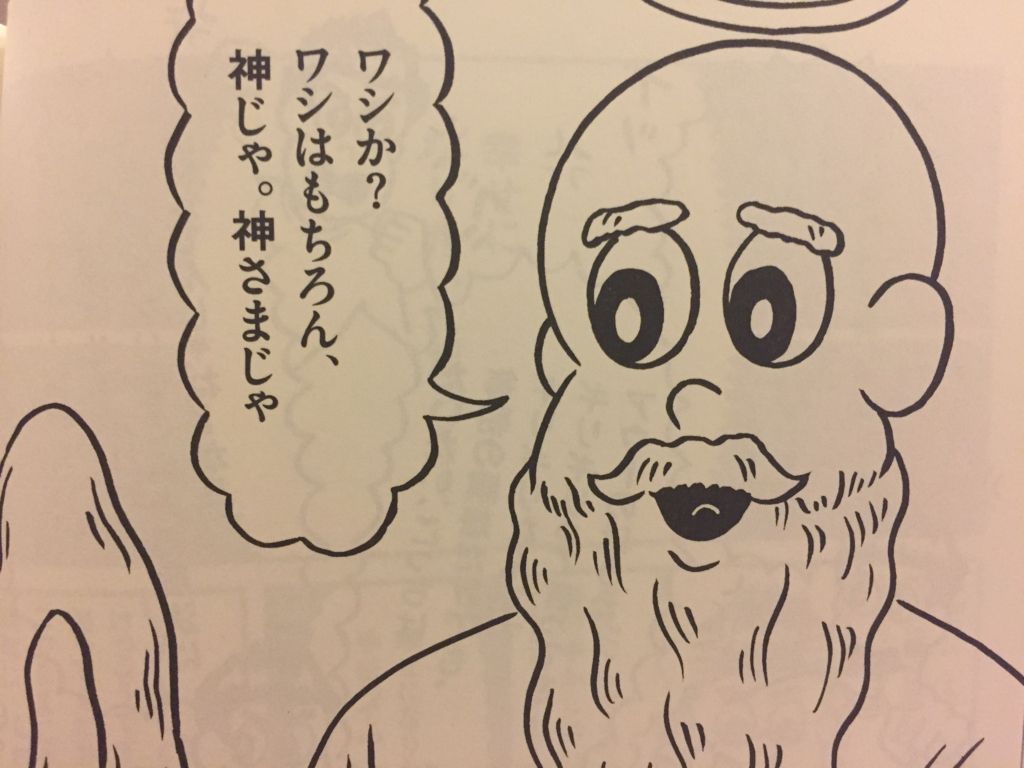 ワシか？
ワシはもちろん、
神じゃ。神さまじゃ